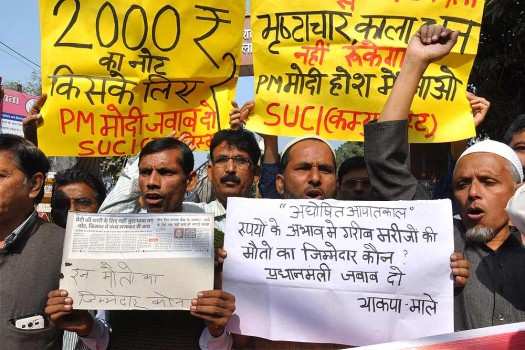 2000 ₹
का नोट
किसके लिए
PM मोदी जवाब दो
SUCI
से
भृष्टाचार काला धन
नहीं रुकेगा
PM मोदी होश में आओ
SUCI(कम्युनिस्ट)
इन मौतो का
जिम्मेदार कौन
"अघोषित आपातकाल"
रुपयो के अभाव मे गरीब मरीजों की
मौतो का जिम्मेदार कौन ?
प्रधानमंत्री जवाब दो
भाकपा-माले